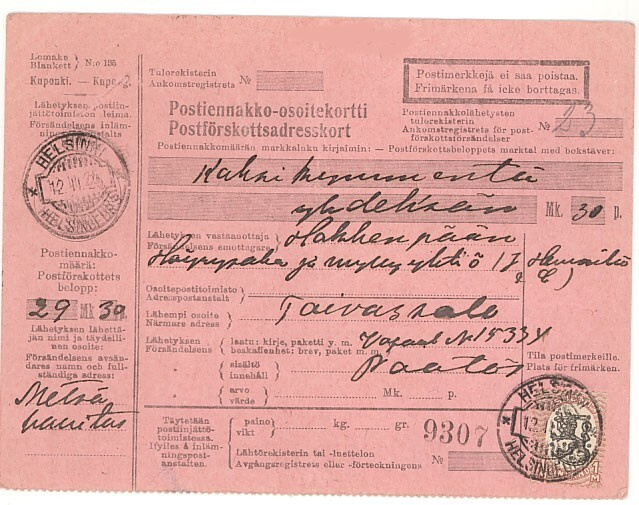 Lomake
Blankett } N:o 135
Kuponki. — Kupong.
Lähetyksen postiin-
jättötoimiston leima.
Försändelsens inläm-
HELSINKI
12. III. 2
HELSINGFORS
Postiennakko-
määrä:
Postförskottets
belopp:
29 Mk 30 p.
Lähetyksen lähettä-
jän nimi ja täydelli-
nen osoite:
Försändelsens avsän-
dares namn och full-
ständiga adress:
Metsä
hallitus
Tulorekisterin
Ankomstregistrets } №
Postimerkkejä ei saa poistaa.
Frimärkena få icke borttagas.
Postiennakko-osoitekortti
Postförskottsadresskort
Postiennakkolähetysten
tulorekisterin
Ankomstregistrets för post-
förskottsförsändelser } № 23
Postiennakkomäärän markkaluku kirjaimin: — Postförskottsbeloppets marktal med bokstäver:
Kaksikymmentä
yhdeksän Mk. 30 p.
Lähetyksen vastaanottaja
Försändelsens emottagare } Hakkenpään
Höyrysaha ja mylly yhtiö
Osoitepostitoimisto
Adresspostanstalt }
Lähempi osoite
Närmare adress } Taivassalo
Lähetyksen
Försändelsens
laatu: kirje, paketti y. m.
beskaffenhet: brev, paket m. m. } N:o 1533
sisältö
innehåll } Päätös
arvo
värde } Mk. p.
Tila postimerkeille.
Plats för frimärken.
Täytetään
postiinjättö-
toimistossa.
Ifylles å inläm-
ningspost-
anstalten.
paino
vikt } kg. gr. 9307
Lähtörekisterin tai -luettelon
Avgångsregistrets eller -förteckningens } №
HELSINKI
12.
HELSINGFORS
1 M